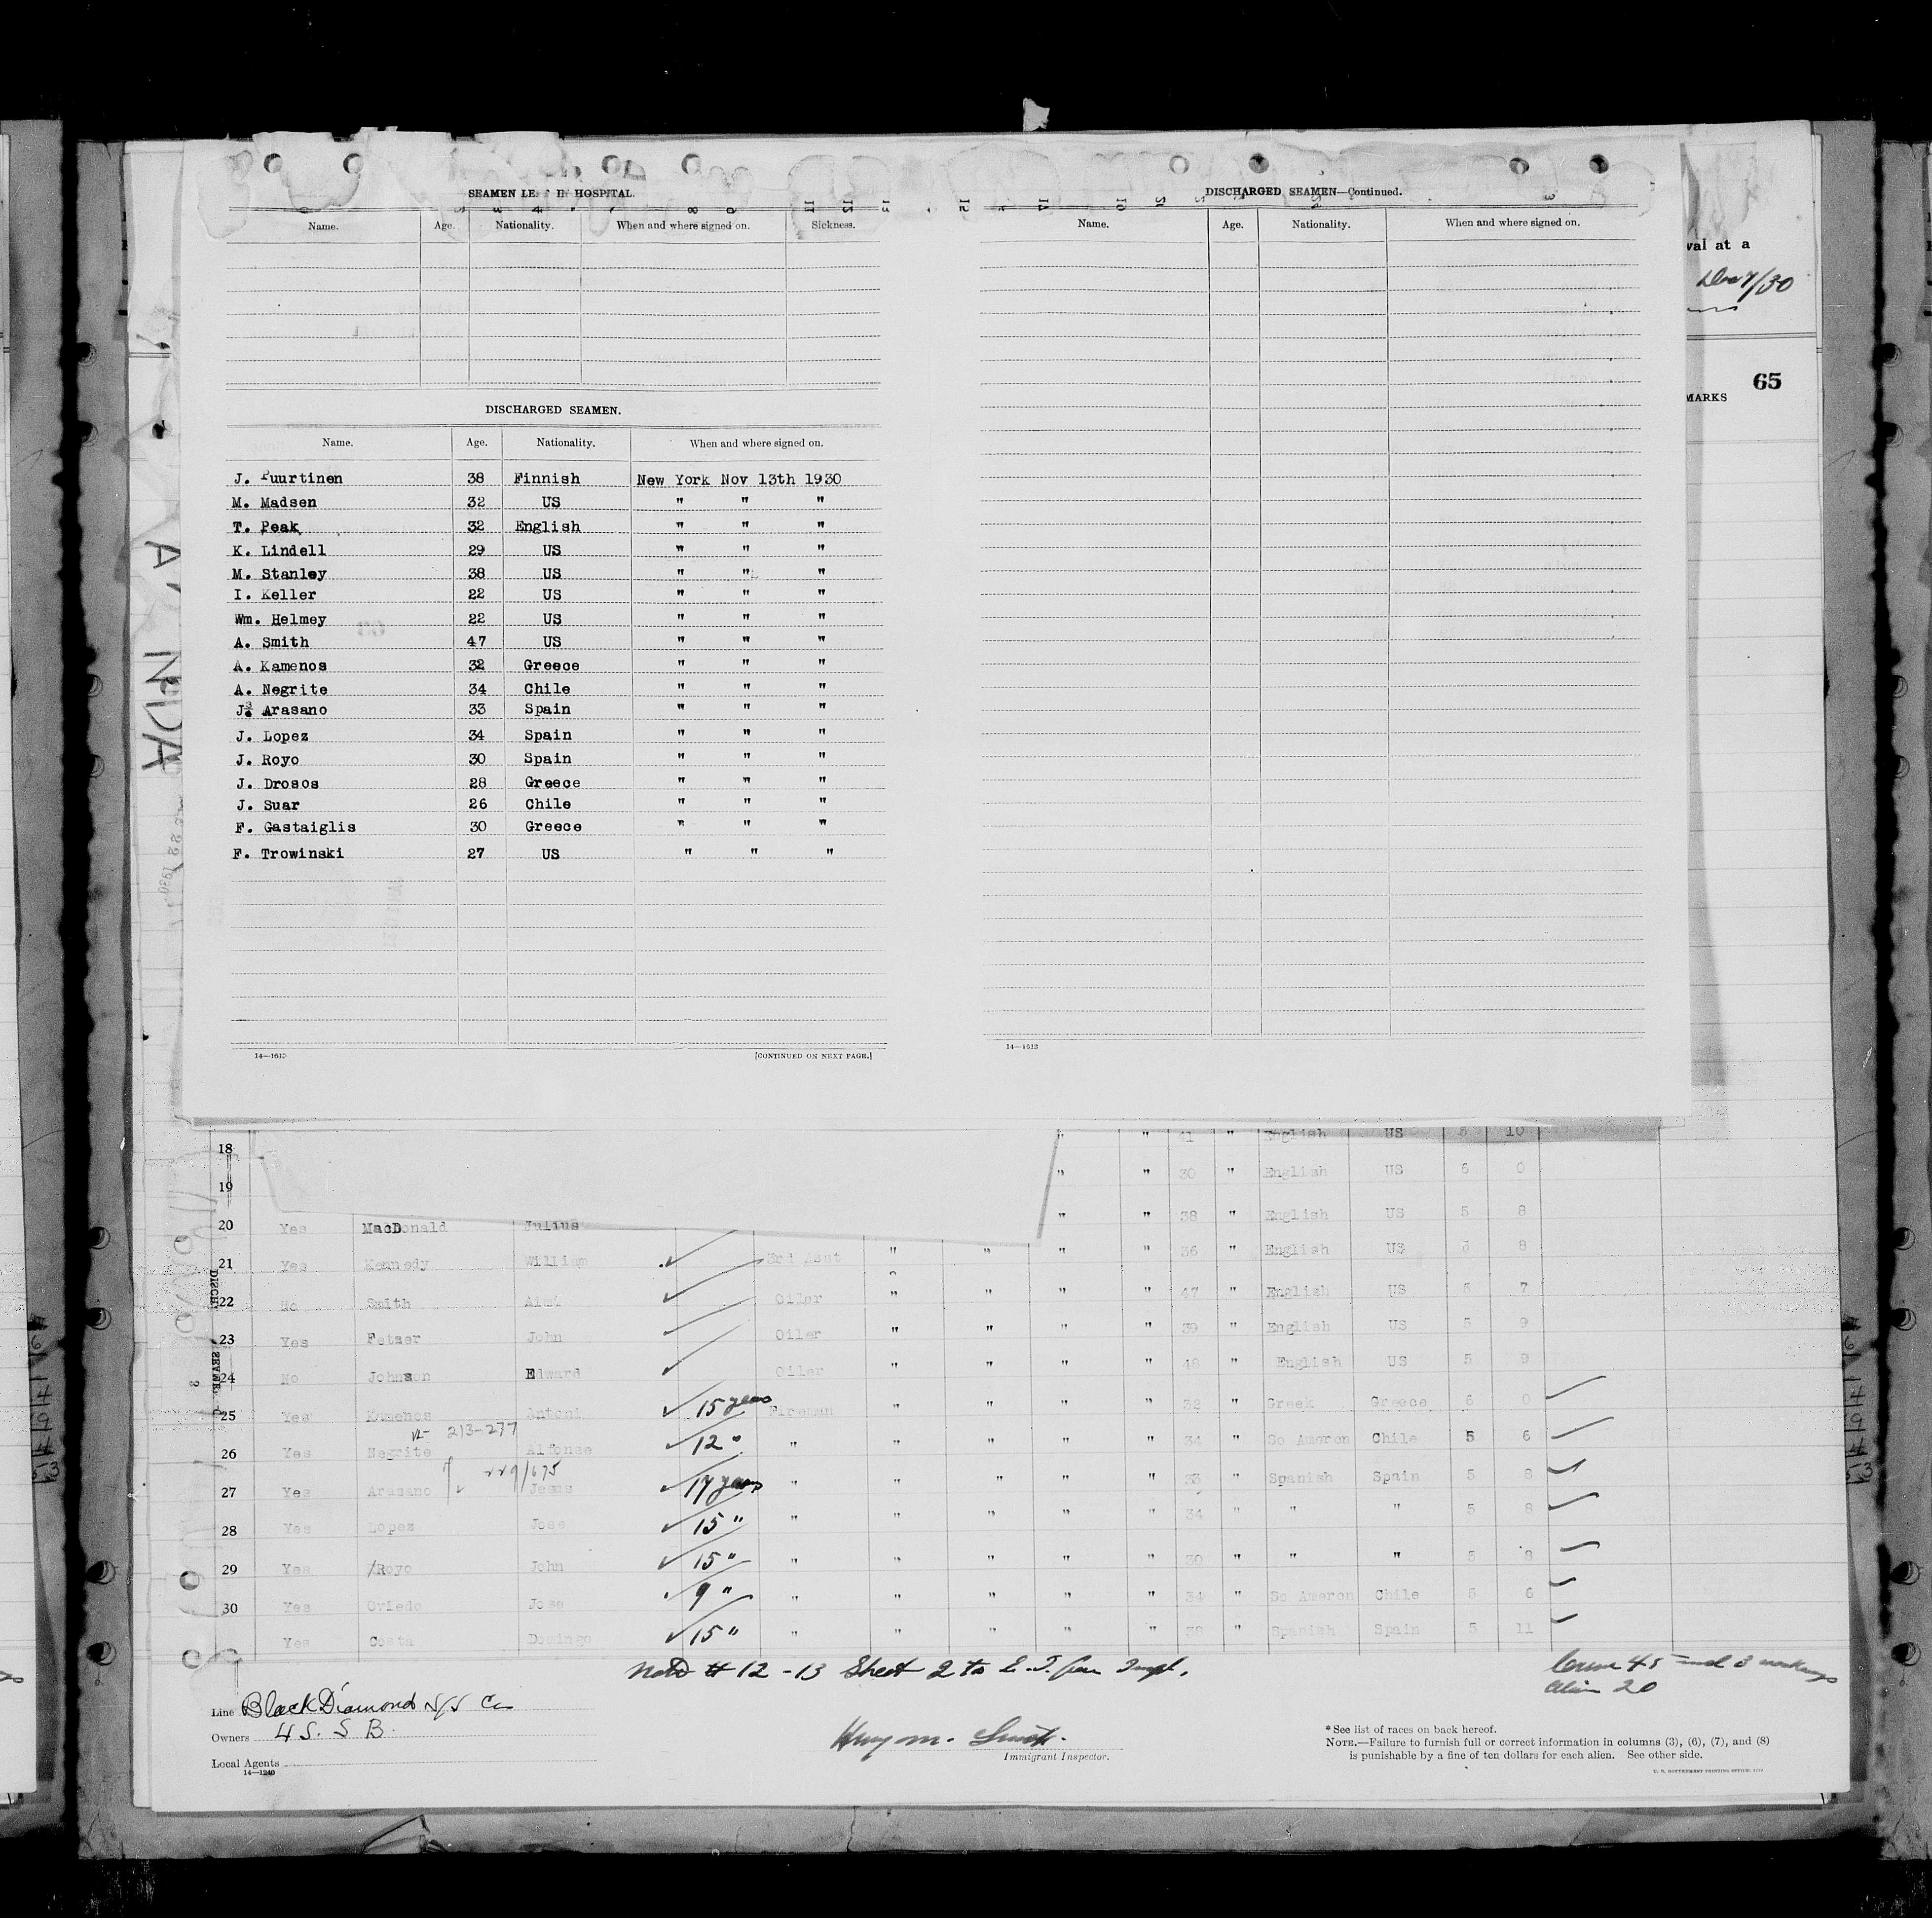 SEAMEN LEFT IN HOSPITAL.
Name. Age. Nationality. When and where signed on. Sickness.
DISCHARGED SEAMEN.
Name. Age. Nationality. When and where signed on.
J. Puurtinen 38 Finnish New York Nov 13th 1930
M. Madsen 32 US " " "
T. Peak 32 English " " "
K. Lindell 29 US " " "
M. Stanley 38 US " " "
I. Keller 22 US " " "
Wm. Helmey 22 US " " "
A. Smith 47 US " " "
A. Kamenos 32 Greece " " "
A. Negrite 34 Chile " " "
J. Arasano 33 Spain " " "
J. Lopez 34 Spain " " "
J. Royo 30 Spain " " "
J. Drosos 28 Greece " " "
J. Suar 26 Chile " " "
F. Gastaiglis 30 Greece " " "
F. Trowinski 27 US " " "
14—1613 [CONTINUED ON NEXT PAGE.]
DISCHARGED SEAMEN—Continued.
Name. Age. Nationality. When and where signed on.
14—1613
val at a
/30
65
MARKS
18 " " 41 " English US 5 10
19 " " 30 " English US 6 0
20 Yes MacDonald Julius " " 38 " English US 5 8
21 Yes Kennedy William 3rd Asst " " " " 36 " English US 5 8
22 No Smith Oiler " " " " 47 " English US 5 7
23 Yes Fetzer John Oiler " " " " 39 " English US 5 9
24 No Johnson Edward Oiler " " " " 48 " English US 5 9
25 Yes Kamenos Antoni 15 years Fireman " " " " 32 " Greek Greece 6 0
213-277
26 Yes Negrite Alfonze 12 " " " " " " 34 " So Ameron Chile 5 6
229/675
27 Yes Arasano Jesus 17 years " " " " " 33 " Spanish Spain 5 8
28 Yes Lopez Jose 15 " " " " " " 34 " " " 5 8
29 Yes Royo John 15 " " " " " " 30 " " " 5 8
30 Yes Oviedo Jose 9 " " " " " " 34 " So Ameron Chile 5 6
Yes Costa Domingo 15 " " " " " " 38 " Spanish Spain 5 11
Note # 12 - 13 Sheet 2 to
Crew 45 and 3 workaways
Alien 20
Line Black Diamond S/S Co
Owners U S. S B.
Local Agents
14—1240
Henry M. Smith.
Immigrant Inspector.
* See list of races on back hereof.
NOTE.—Failure to furnish full or correct information in columns (3), (6), (7), and (8)
is punishable by a fine of ten dollars for each alien. See other side.
U. S. GOVERNMENT PRINTING OFFICE: